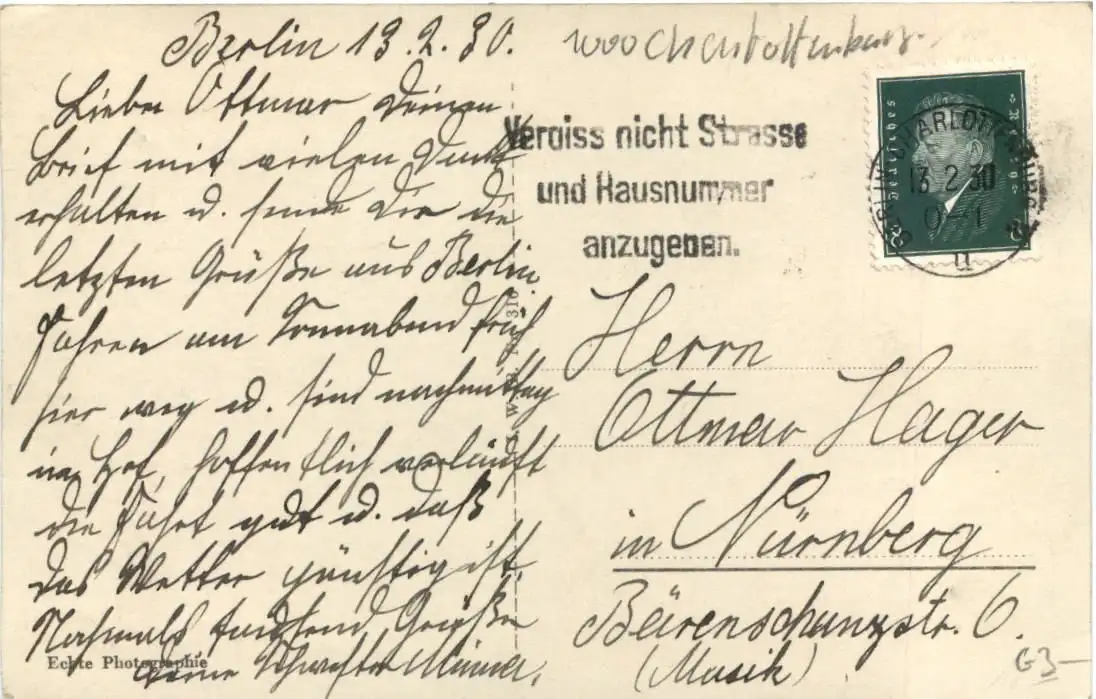 Berlin 13.2.30.
Lieber Ottmar Deinen
Brief mit vielen Dank
erhalten u. sende Dir die
letzten Grüße aus Berlin.
Fahren am Sonnabend früh
hier weg u. sind nachmittag
in Hof, hoffentlich verläuft
die Fahrt gut u. daß
das Wetter günstig ist.
Nochmals tausend Grüße
Deine Schwester
Echte Photographie
Vergiss nicht Strasse
und Hausnummer
anzugeben.
Deutsches Reich
8 8
BERLIN-CHARLOTTENBURG
13.2.30
0-1
Herrn
Ottmar Hager
in Nürnberg
Bärenschanzstr. 6.
(Musik)
63-